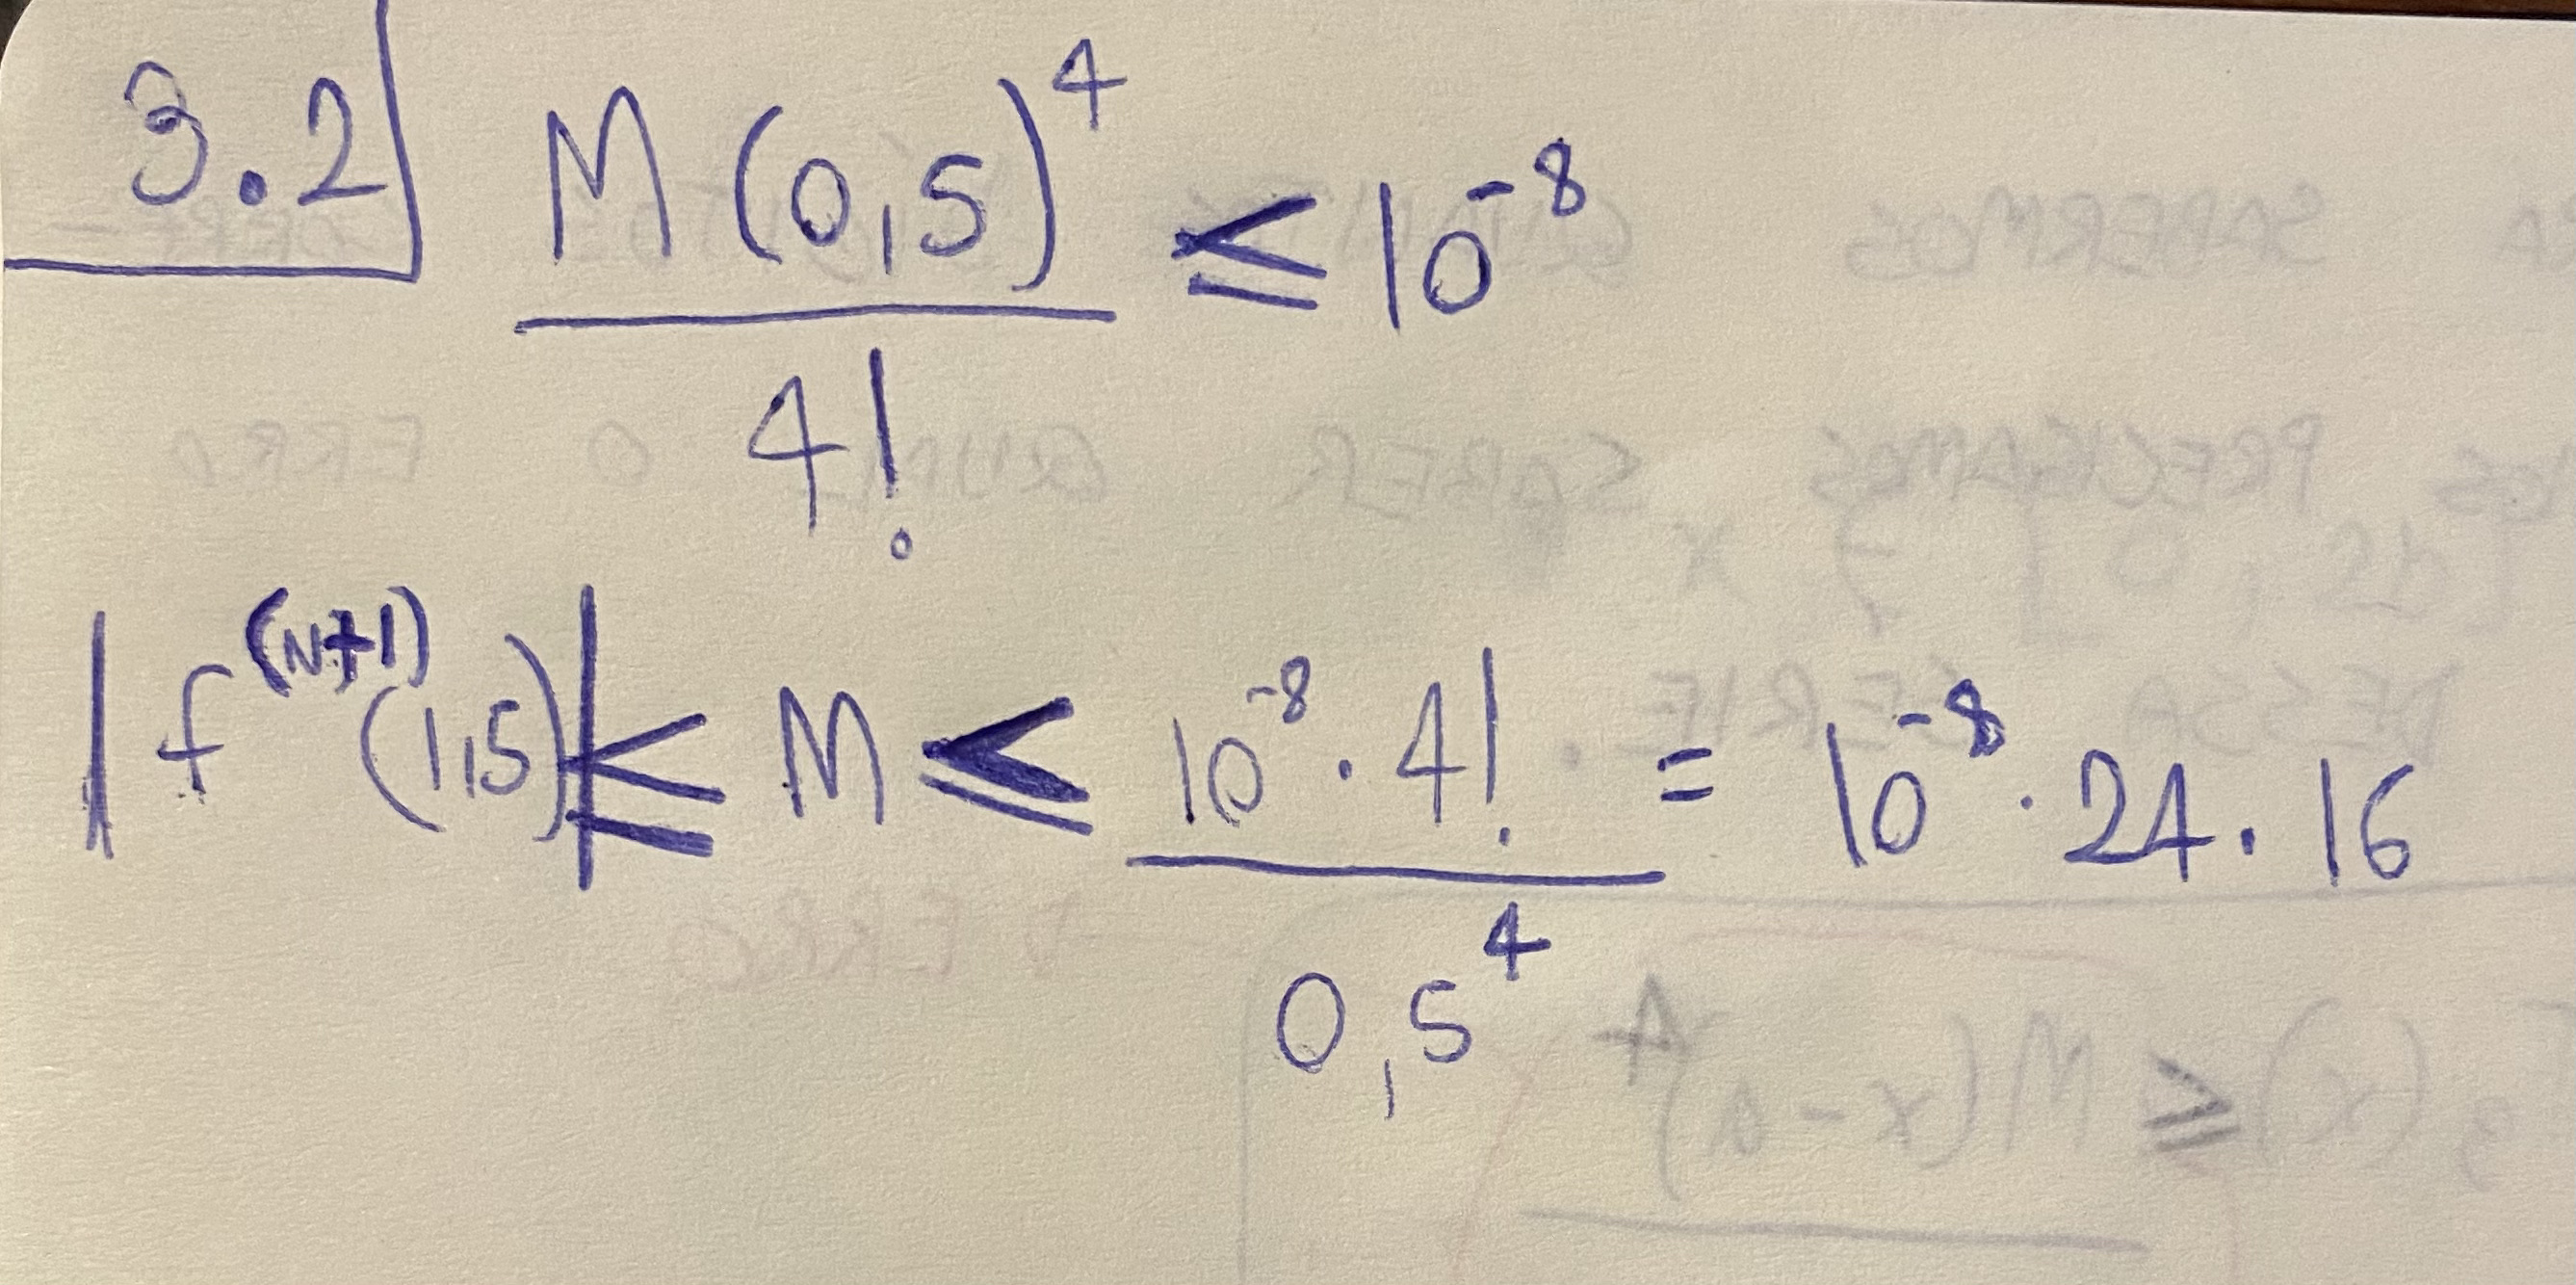 3.2 M(0,5)^4 / 4! ≤ 10^-8
|f^(N+1)(1,5)| ≤ M ≤ 10^-8 · 4! / 0,5^4 = 10^-8 · 24 · 16